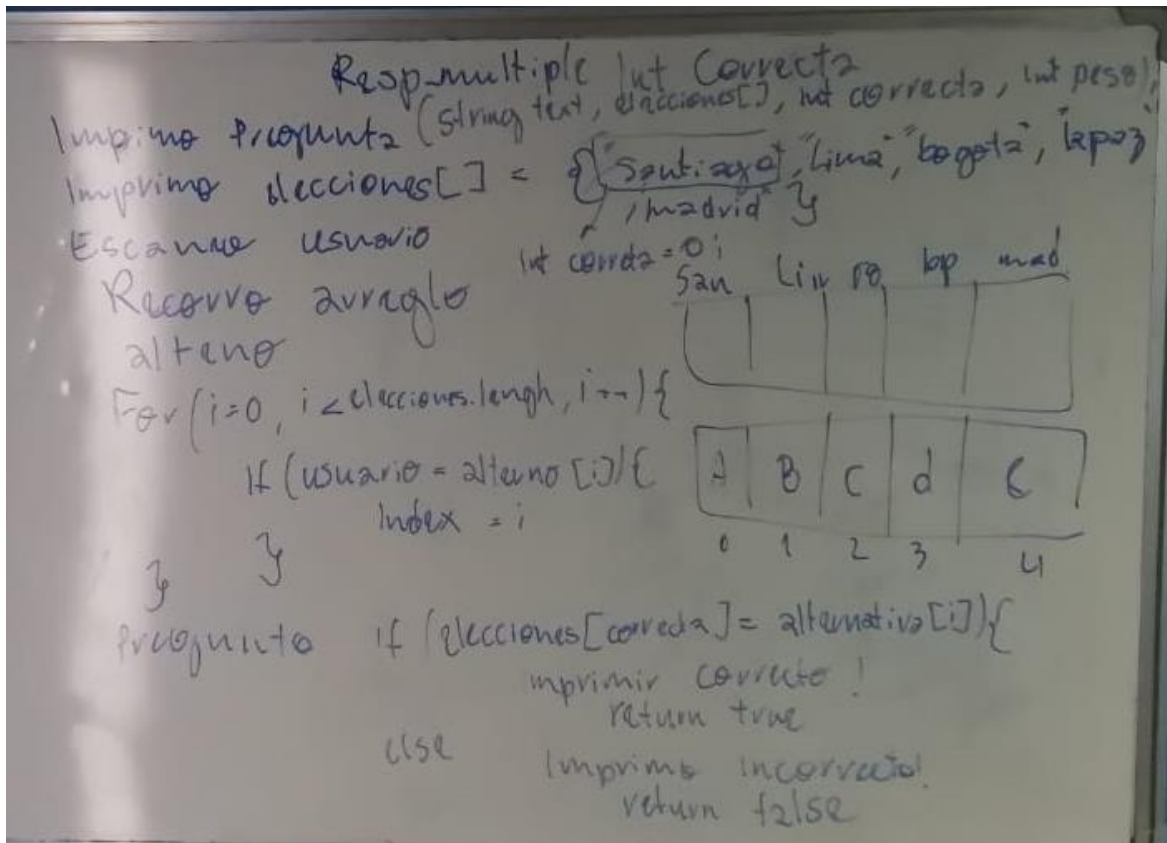 Resp_multiple Int Correcta
(string text, elecciones[], int correcta, int peso),
Imprimo Pregunta
Imprimo elecciones[] = {"Santiago", "Lima", "bogota", "lapaz
, madrid" }
Escaneo usuario
int correta = 0;
Recorro arreglo
alteno
San Lim bp mad
For (i=0, i < elecciones.lengh, i--) {
If (usuario = alterno [i]) {
Index = i
}
}
A B C d E
0 1 2 3 4
Pregunto if (elecciones[correcta] = alternativa [i]) {
mprimir correcto !
return true
else
Imprimo incorrecto!
return false